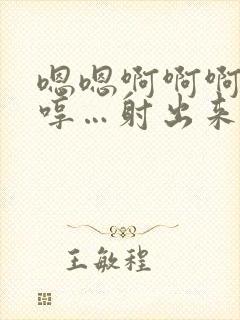 嗯嗯啊啊啊
哼…射出来
王敏程